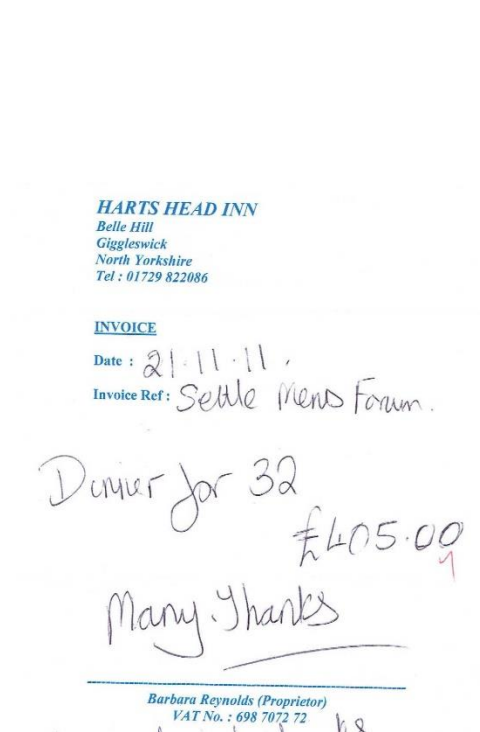 HARTS HEAD INN
Belle Hill
Giggleswick
North Yorkshire
Tel : 01729 822086
INVOICE
Date : 21.11.11.
Invoice Ref : Settle Mens Forum.
Dinner for 32
£405.00
Many Thanks
Barbara Reynolds (Proprietor)
VAT No. : 698 7072 72